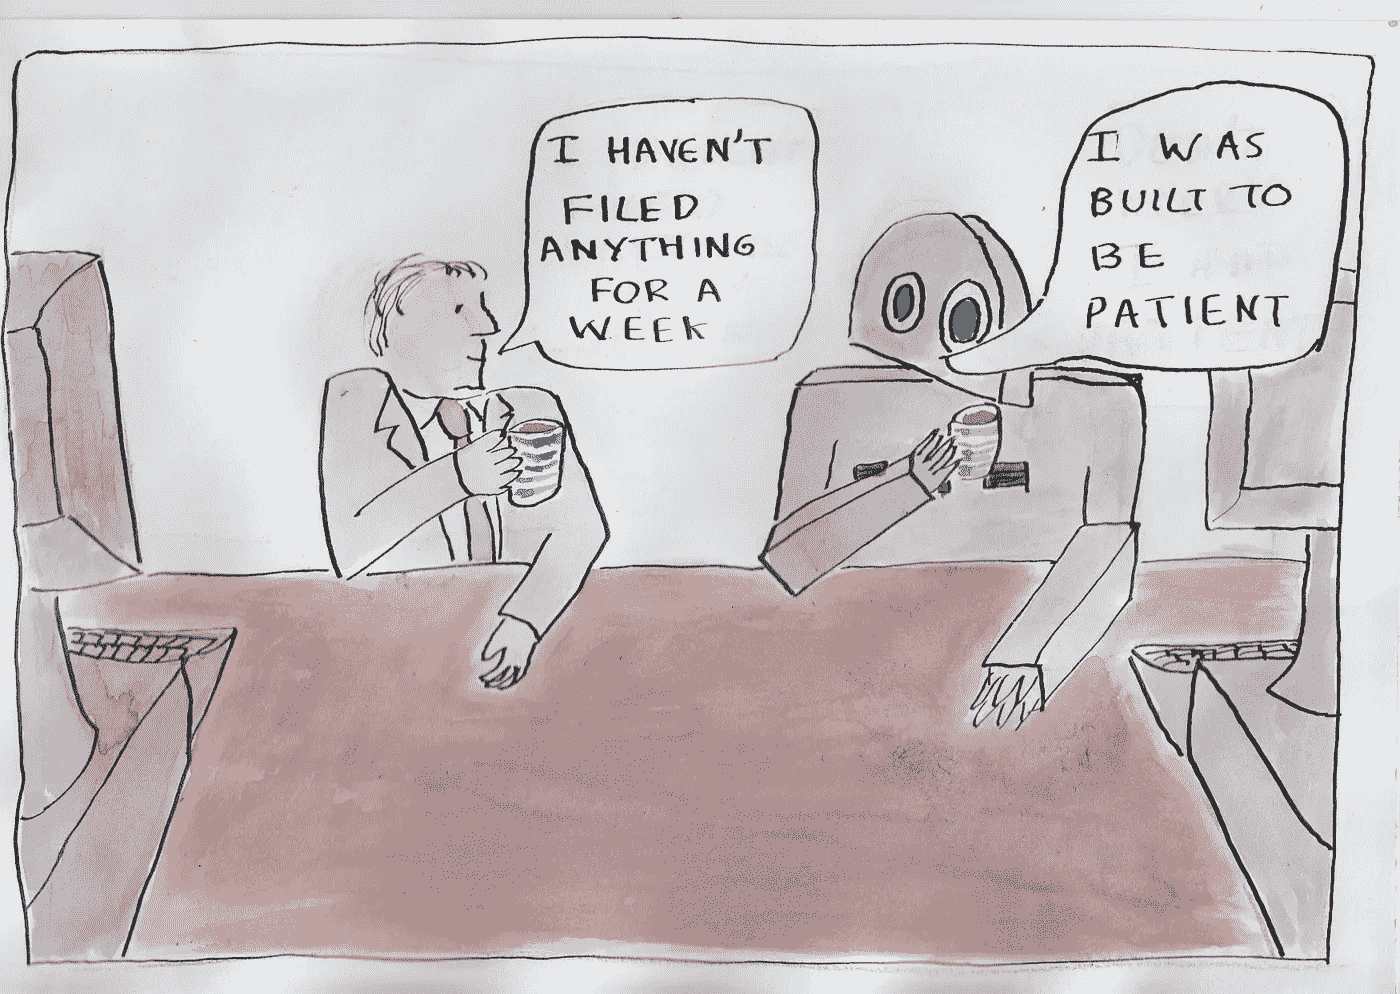 I HAVEN'T
FILED
ANYTHING
FOR A
WEEK
I WAS
BUILT TO
BE
PATIENT